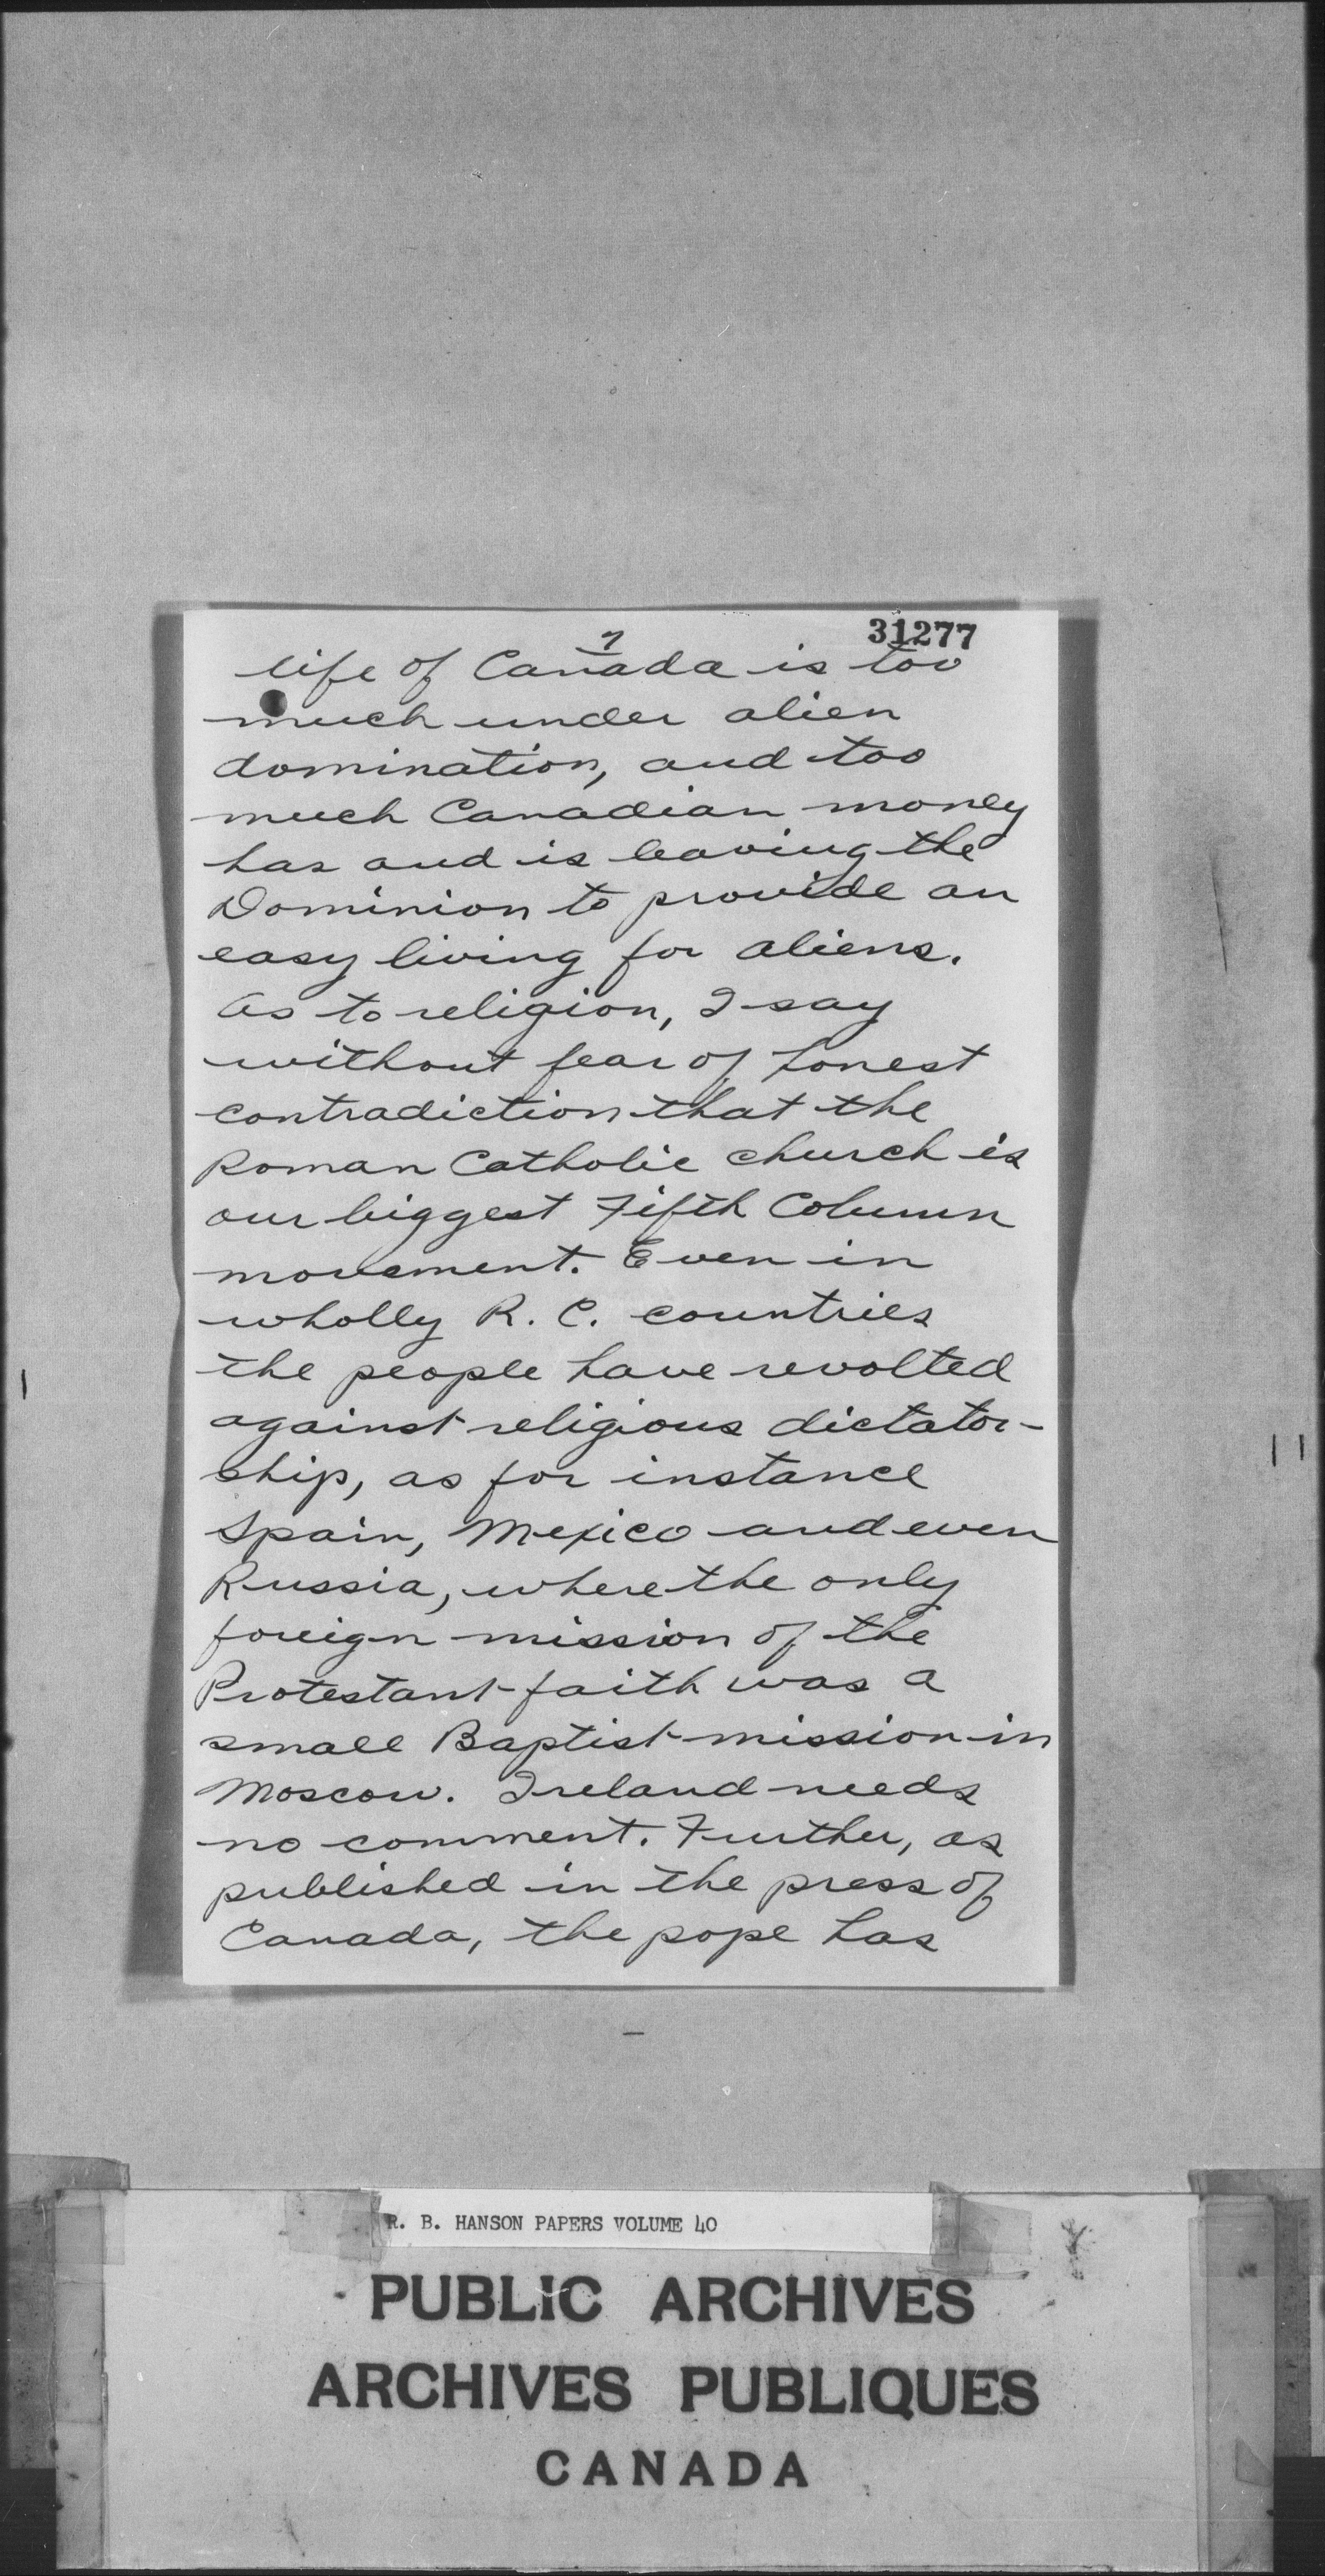 31277
7
life of Canada is too
much under alien
domination, and too
much Canadian money
has and is leaving the
Dominion to provide an
easy living for aliens.
As to religion, I say
without fear of honest
contradiction that the
Roman Catholic church is
our biggest Fifth Column
movement. Even in
wholly R. C. countries
the people have revolted
against religious dictator-
ship, as for instance
Spain, Mexico and even
Russia, where the only
foreign mission of the
Protestant faith was a
small Baptist mission in
Moscow. Ireland needs
no comment. Further, as
published in the press of
Canada, the pope has
R. B. HANSON PAPERS VOLUME 40
PUBLIC ARCHIVES
ARCHIVES PUBLIQUES
CANADA